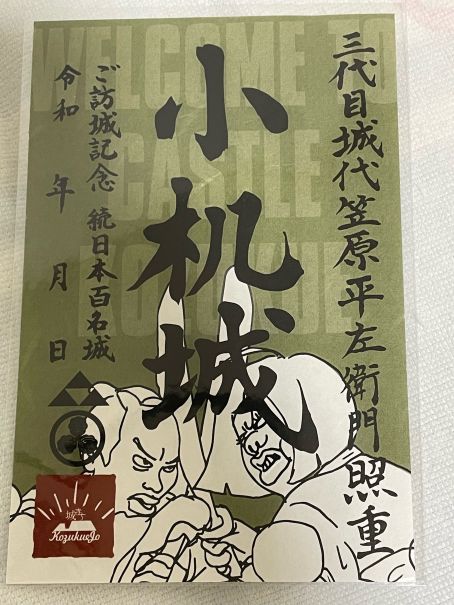 三代目城代笠原平左衛門照重
小机城
ご訪城記念 続日本百名城
令和 年 月 日
WELCOME TO
CASTLE
KOZUKUE
城
KozukueJo